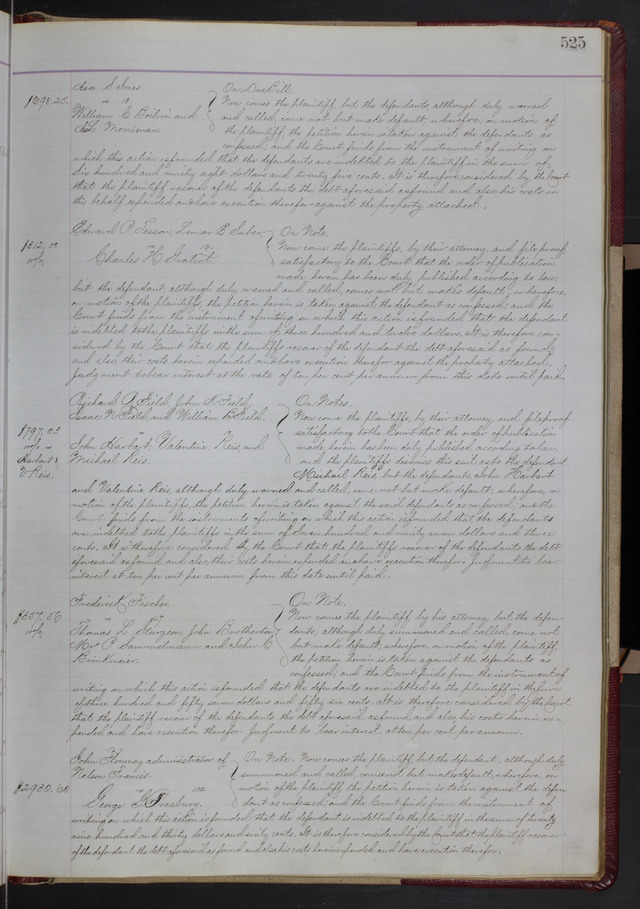 525
Asa Sabnes
vs
William C. Boilvin and
Merriman
$698.25.
On Due Bill.
Now comes the plaintiff, but the defendants, although duly warned
and called, come not but make default; wherefore, on motion of
the plaintiff, the petition herein is taken against the defendants as
confessed; and the Court finds from the instrument of writing on
which this action is founded that the defendants are indebted to the plaintiff in the sum of
six hundred and ninety eight dollars and twenty five cents. It is therefore considered by the Court
that the plaintiff recover of the defendants the debt aforesaid as found and also his costs in
this behalf expended and have execution therefor against the property attached.
Edward P. Tesson, Lemar E. Saber,
vs
Charles H. Gratiot.
$312.00
10 p/c
On Note.
Now come the plaintiffs, by their attorney, and file proof
satisfactory to the Court that the order of publication
made herein has been duly published according to law;
but the defendant, although duly warned and called, comes not but makes default; wherefore,
on motion of the plaintiffs, the petition herein is taken against the defendant as confessed; and the
Court finds from the instrument of writing on which this action is founded that the defendant
is indebted to the plaintiffs in the sum of three hundred and twelve dollars. It is therefore con-
sidered by the Court that the plaintiffs recover of the defendant the debt aforesaid as found,
and also their costs herein expended and have execution therefor against the property attached.
Judgment to bear interest at the rate of ten per cent per annum from this date until paid.
Richard A. Field, John A. Field,
Isaac W. Field, and William B. Field.
vs
John Harbart, Valentine Reis, and
Michael Reis.
$797.03
10 p/c
Harbart &
V. Reis.
On Notes.
Now come the plaintiffs, by their attorney, and file proof
satisfactory to the Court that the order of publication
made herein has been duly published according to law
and the plaintiffs dismiss this suit as to the defendant
Michael Reis, but the defendants, John Harbart
and Valentine Reis, although duly warned and called, come not but make default; wherefore, on
motion of the plaintiffs, the petition herein is taken against the said defendants as confessed; and the
Court finds from the instruments of writing on which this action is founded that the defendants
are indebted to the plaintiffs in the sum of seven hundred and ninety seven dollars and three
cents. It is therefore considered by the Court that the plaintiffs recover of the defendants the debt
aforesaid as found and also their costs herein expended and have execution therefor. Judgment to bear
interest at ten per cent per annum from this date until paid.
Frederick Fischer.
vs
Thomas L. Sturgeon, John Brotherton,
Wm. P. Sammelmann and John C.
Brinkmeier.
$357.56
10 p/c
On Note.
Now comes the plaintiff by his attorney, but the defen-
dants, although duly summoned and called, come not
but make default; wherefore, on motion of the plaintiff,
the petition herein is taken against the defendants as
confessed; and the Court finds from the instrument of
writing on which this action is founded that the defendants are indebted to the plaintiff in the sum
of three hundred and fifty seven dollars and fifty six cents. It is therefore considered by the Court
that the plaintiff recover of the defendants the debt aforesaid as found, and also his costs herein ex-
pended and have execution therefor. Judgment to bear interest at ten per cent per annum.
John Flournoy administrator of
Nelson Francis.
vs
George Presbury.
$2930.60
On Note. Now comes the plaintiff, but the defendant, although duly
summoned and called, comes not but makes default; wherefore, on
motion of the plaintiff, the petition herein is taken against the defen-
dant as confessed; and the Court finds from the instrument of
writing on which this action is founded that the defendant is indebted to the plaintiff in the sum of twenty
nine hundred and thirty dollars and sixty cents. It is therefore considered by the Court that the plaintiff recover
of the defendant the debt aforesaid as found and also his costs herein expended and have execution therefor.